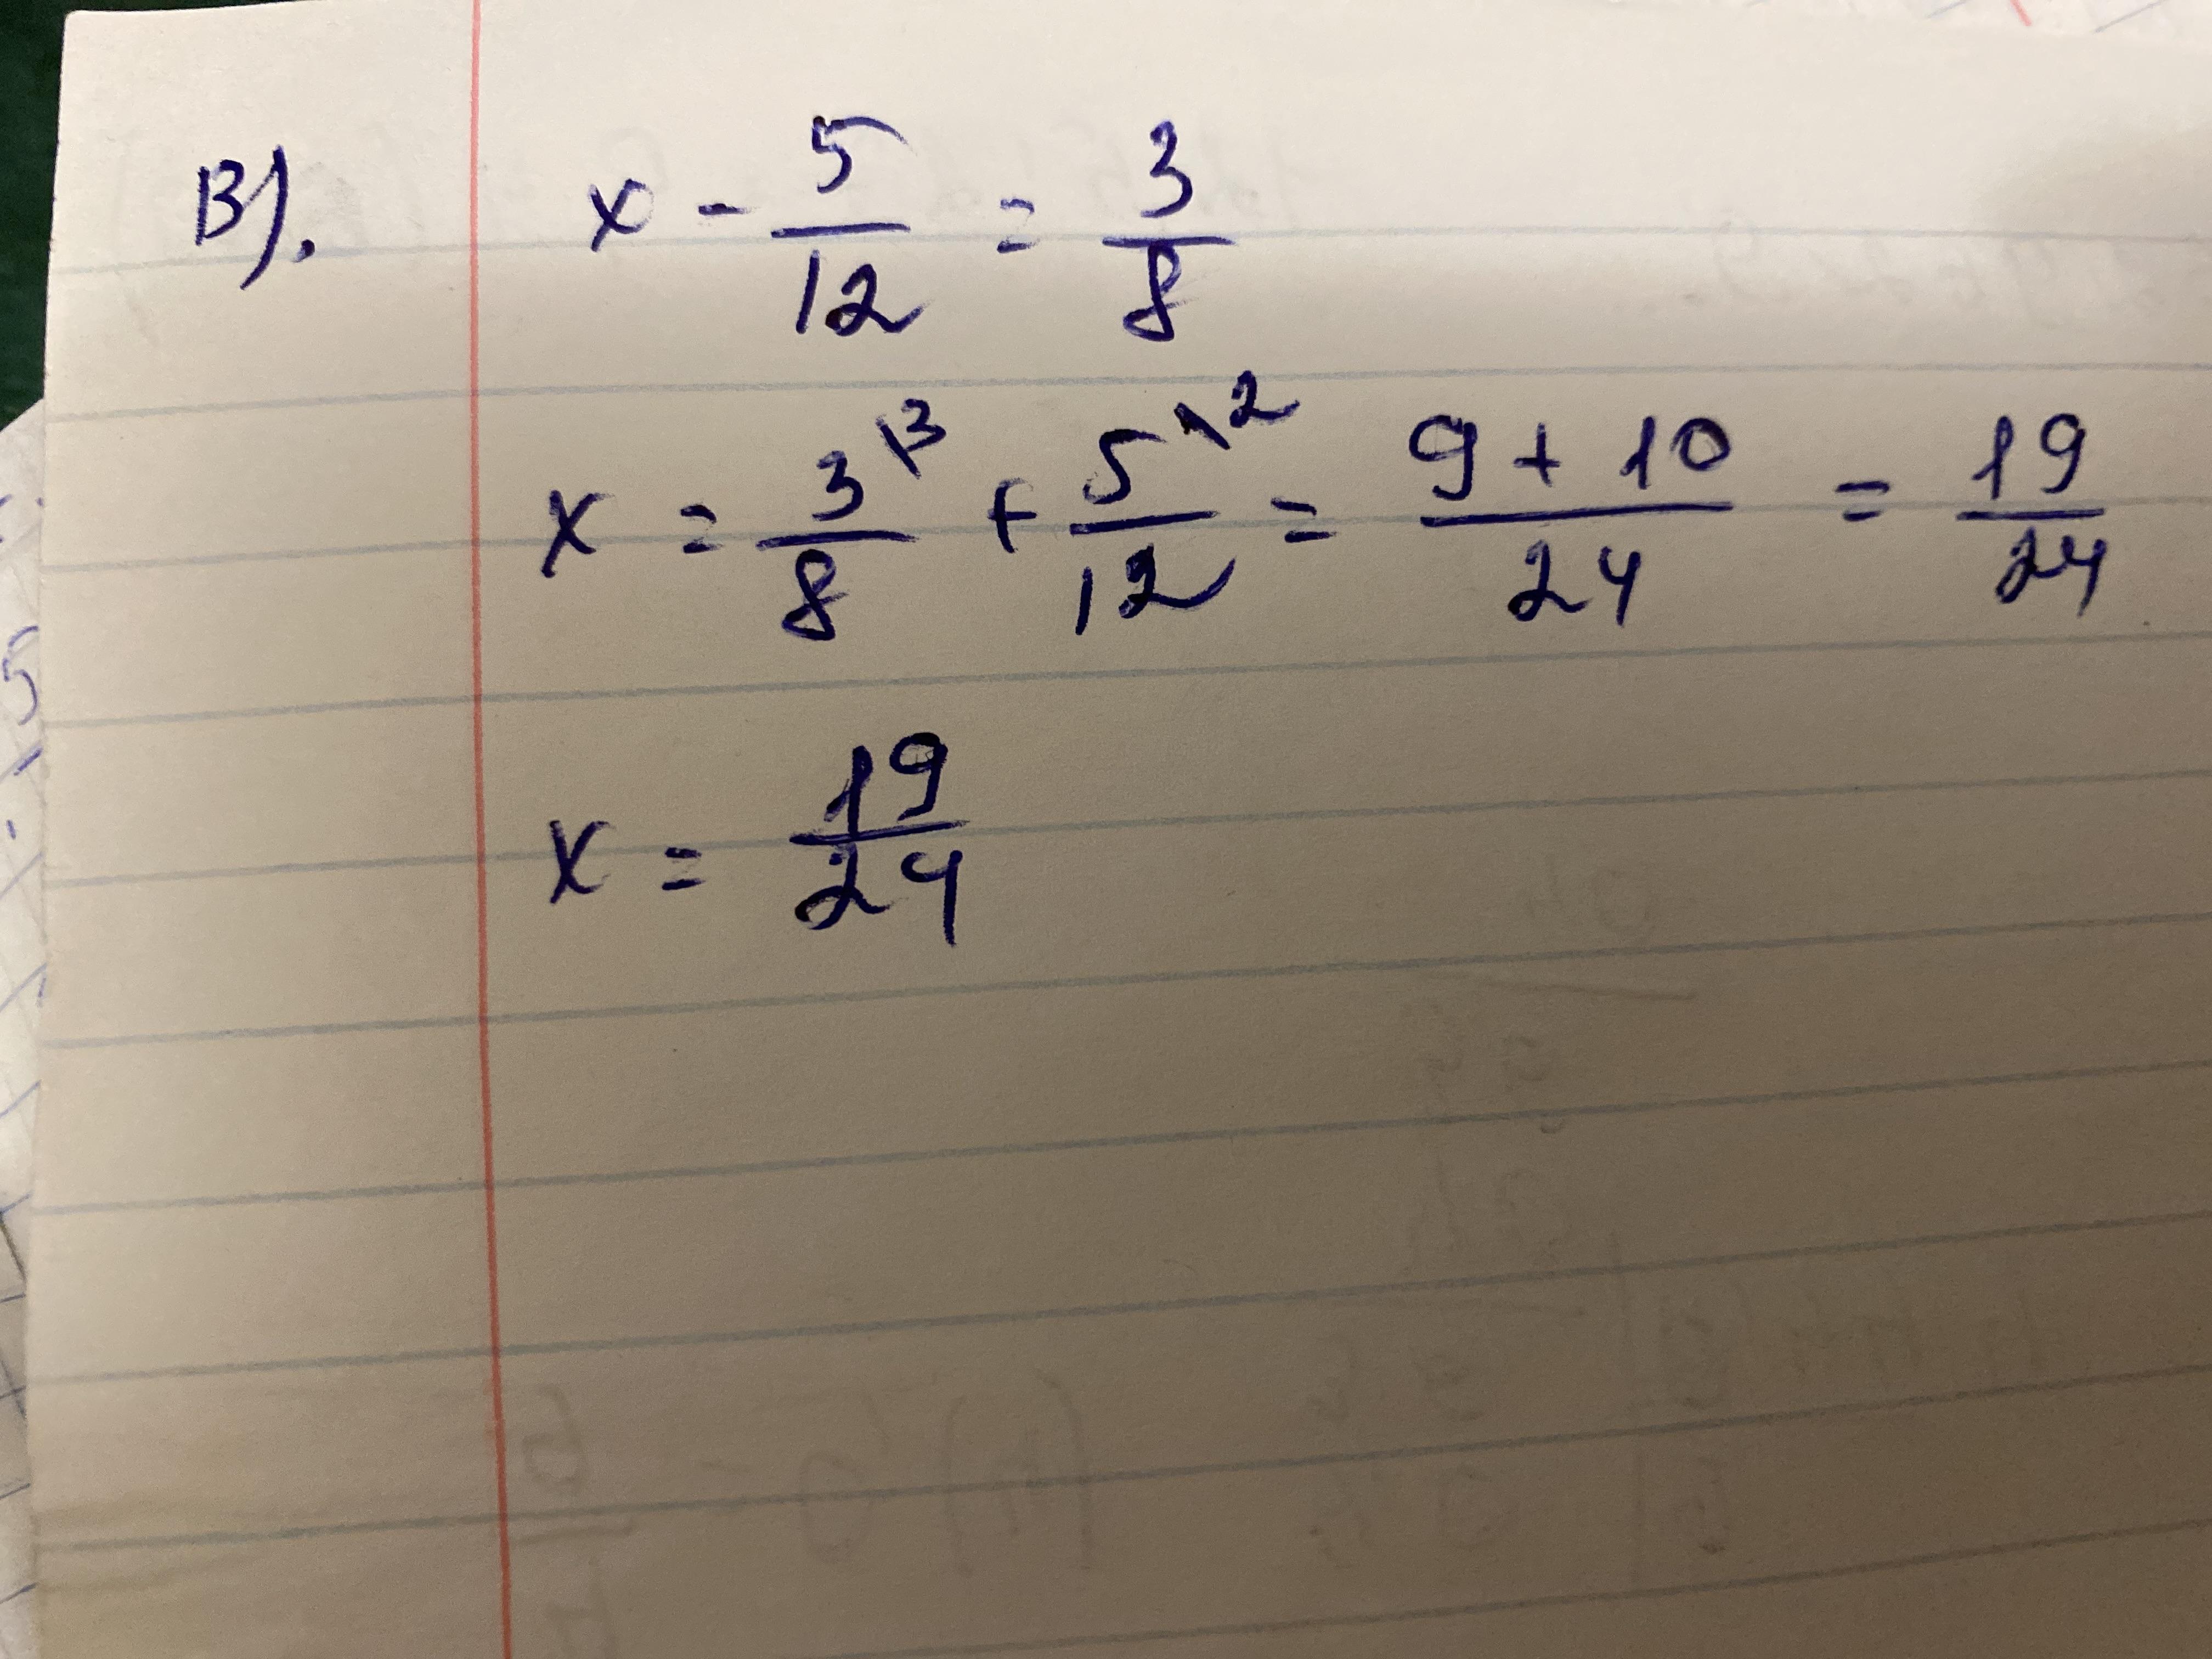 В). x - 5/12 = 3/8
x = 3\3/8 + 5\2/12 = 9 + 10/24 = 19/24
x = 19/24